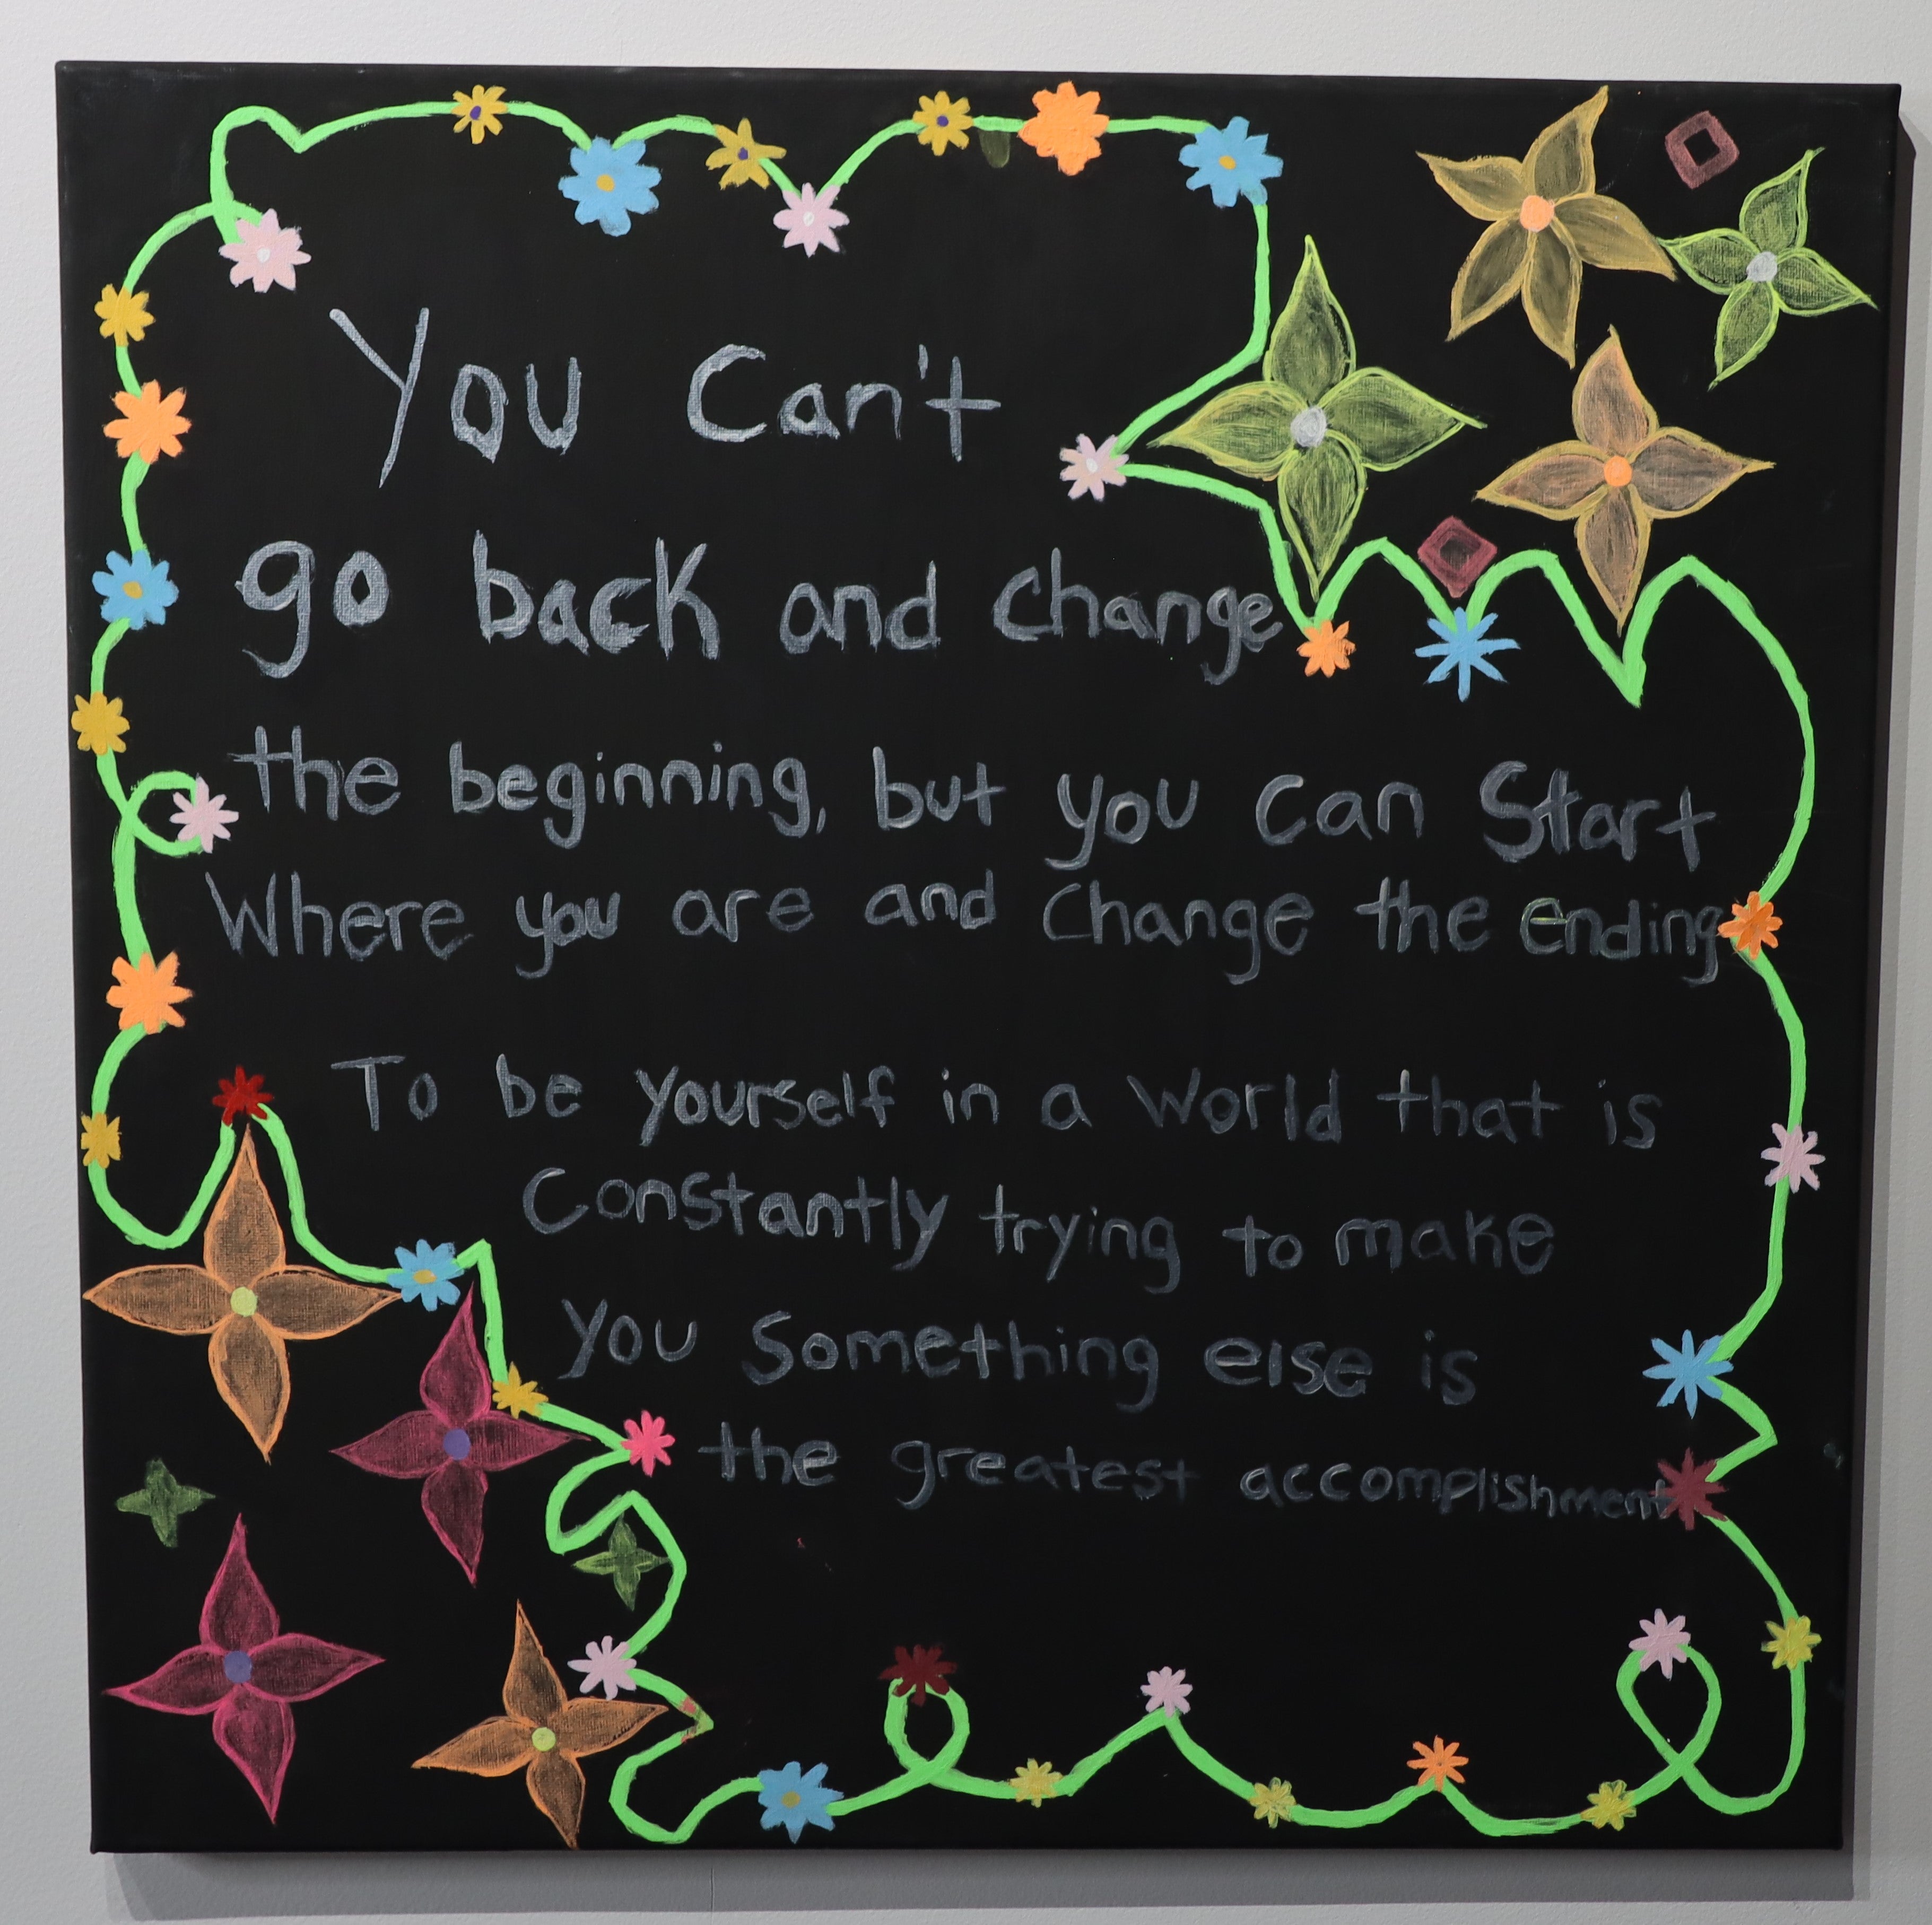 You Can't
go back and change
the beginning, but you can Start
Where you are and Change the Ending
To be yourself in a World that is
Constantly trying to make
you Something else is
the greatest accomplishment